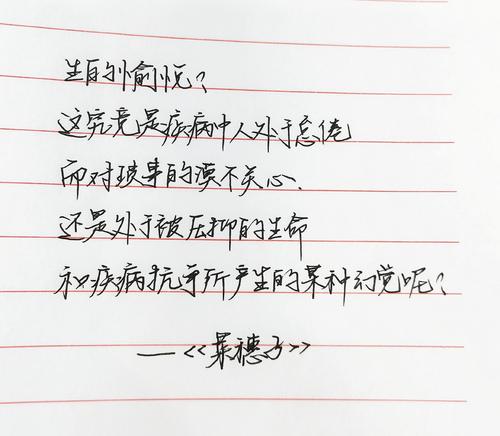 生的愉悦？
这究竟是疾病中人处于怠倦
而对琐事的漠不关心、
还是处于被压抑的生命
和疾病抗争所产生的某种幻觉呢？
——《菜穗子》